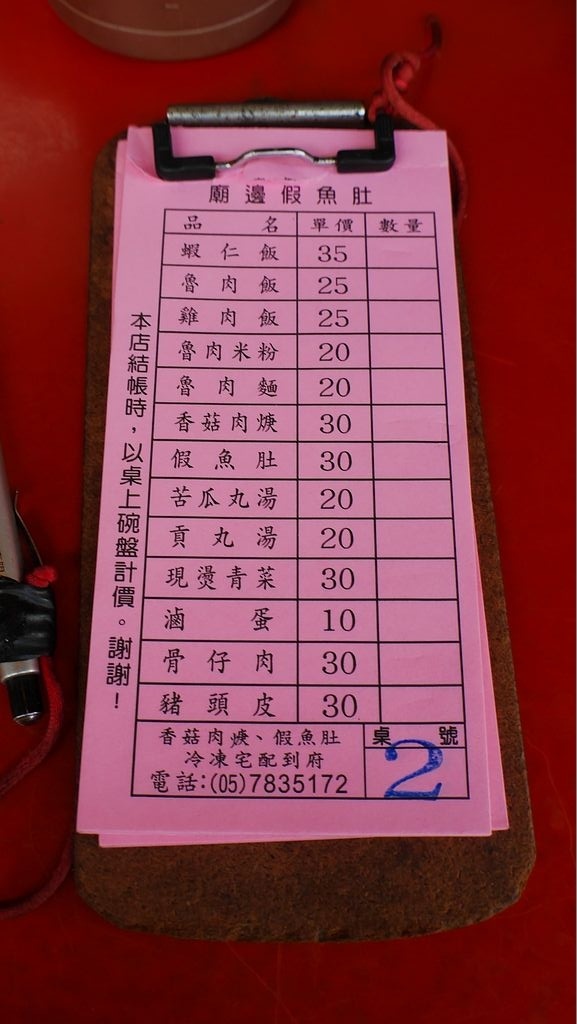 廟邊假魚肚
品名 單價 數量
蝦仁飯 35
魯肉飯 25
雞肉飯 25
魯肉米粉 20
魯肉麵 20
香菇肉焿 30
假魚肚 30
苦瓜丸湯 20
貢丸湯 20
現燙青菜 30
滷蛋 10
骨仔肉 30
豬頭皮 30
香菇肉焿、假魚肚
冷凍宅配到府
電話:(05)7835172
桌號
2
本店結帳時，以桌上碗盤計價。謝謝！